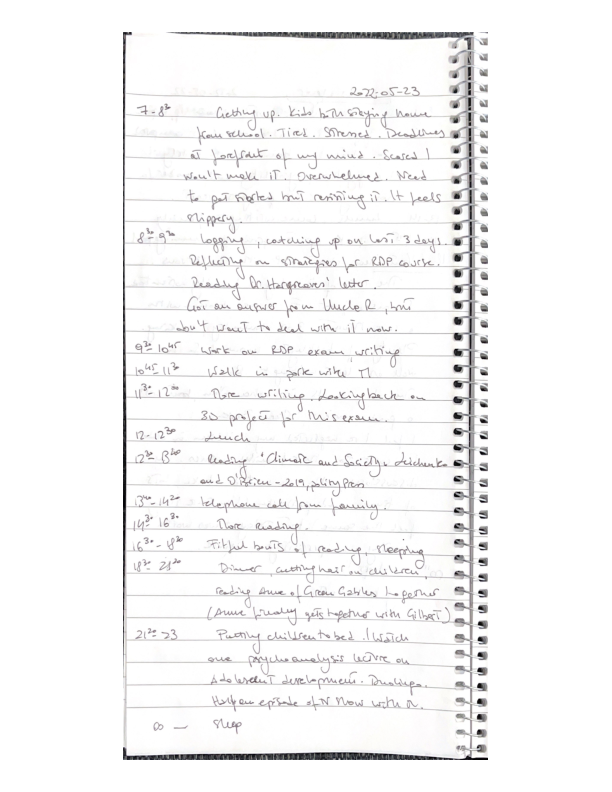 2022-05-23
7-8³⁰ Getting up. Kids both staying home
from school. Tired. Stressed. Deadlines
at forefront of my mind. Scared I
won't make it. Overwhelmed. Need
to get started but resisting it. It feels
slippery.
8³⁰-9³⁰ Logging, catching up on last 3 days.
Reflecting on strategies for RDP course.
Reading Dr. Hargreaves' letter.
Got an answer from Uncle R, but
don't want to deal with it now.
9³⁰-10⁴⁵ Work on RDP exam, writing
10⁴⁵-11³⁰ Walk in park with
11³⁰-12⁰⁰ More writing. Looking back on
3D project for this exam.
12-12³⁰ Lunch
12³⁰ Reading 'Climate and Society, Leichenko
and O'Brien - 2019, polity Press
14²⁰ telephone call from family.
14³⁰-16³⁰ More reading.
16³⁰-18³⁰ Fitful bouts of reading, sleeping
18³⁰ Dinner, cutting hair on children,
reading Anne of Green Gables together
(Anne finally gets together with Gilbert)
23 Putting children to bed. I watch
one psychoanalysis lecture on
Adolescent development.
Half an episode of with
00 — Sleep